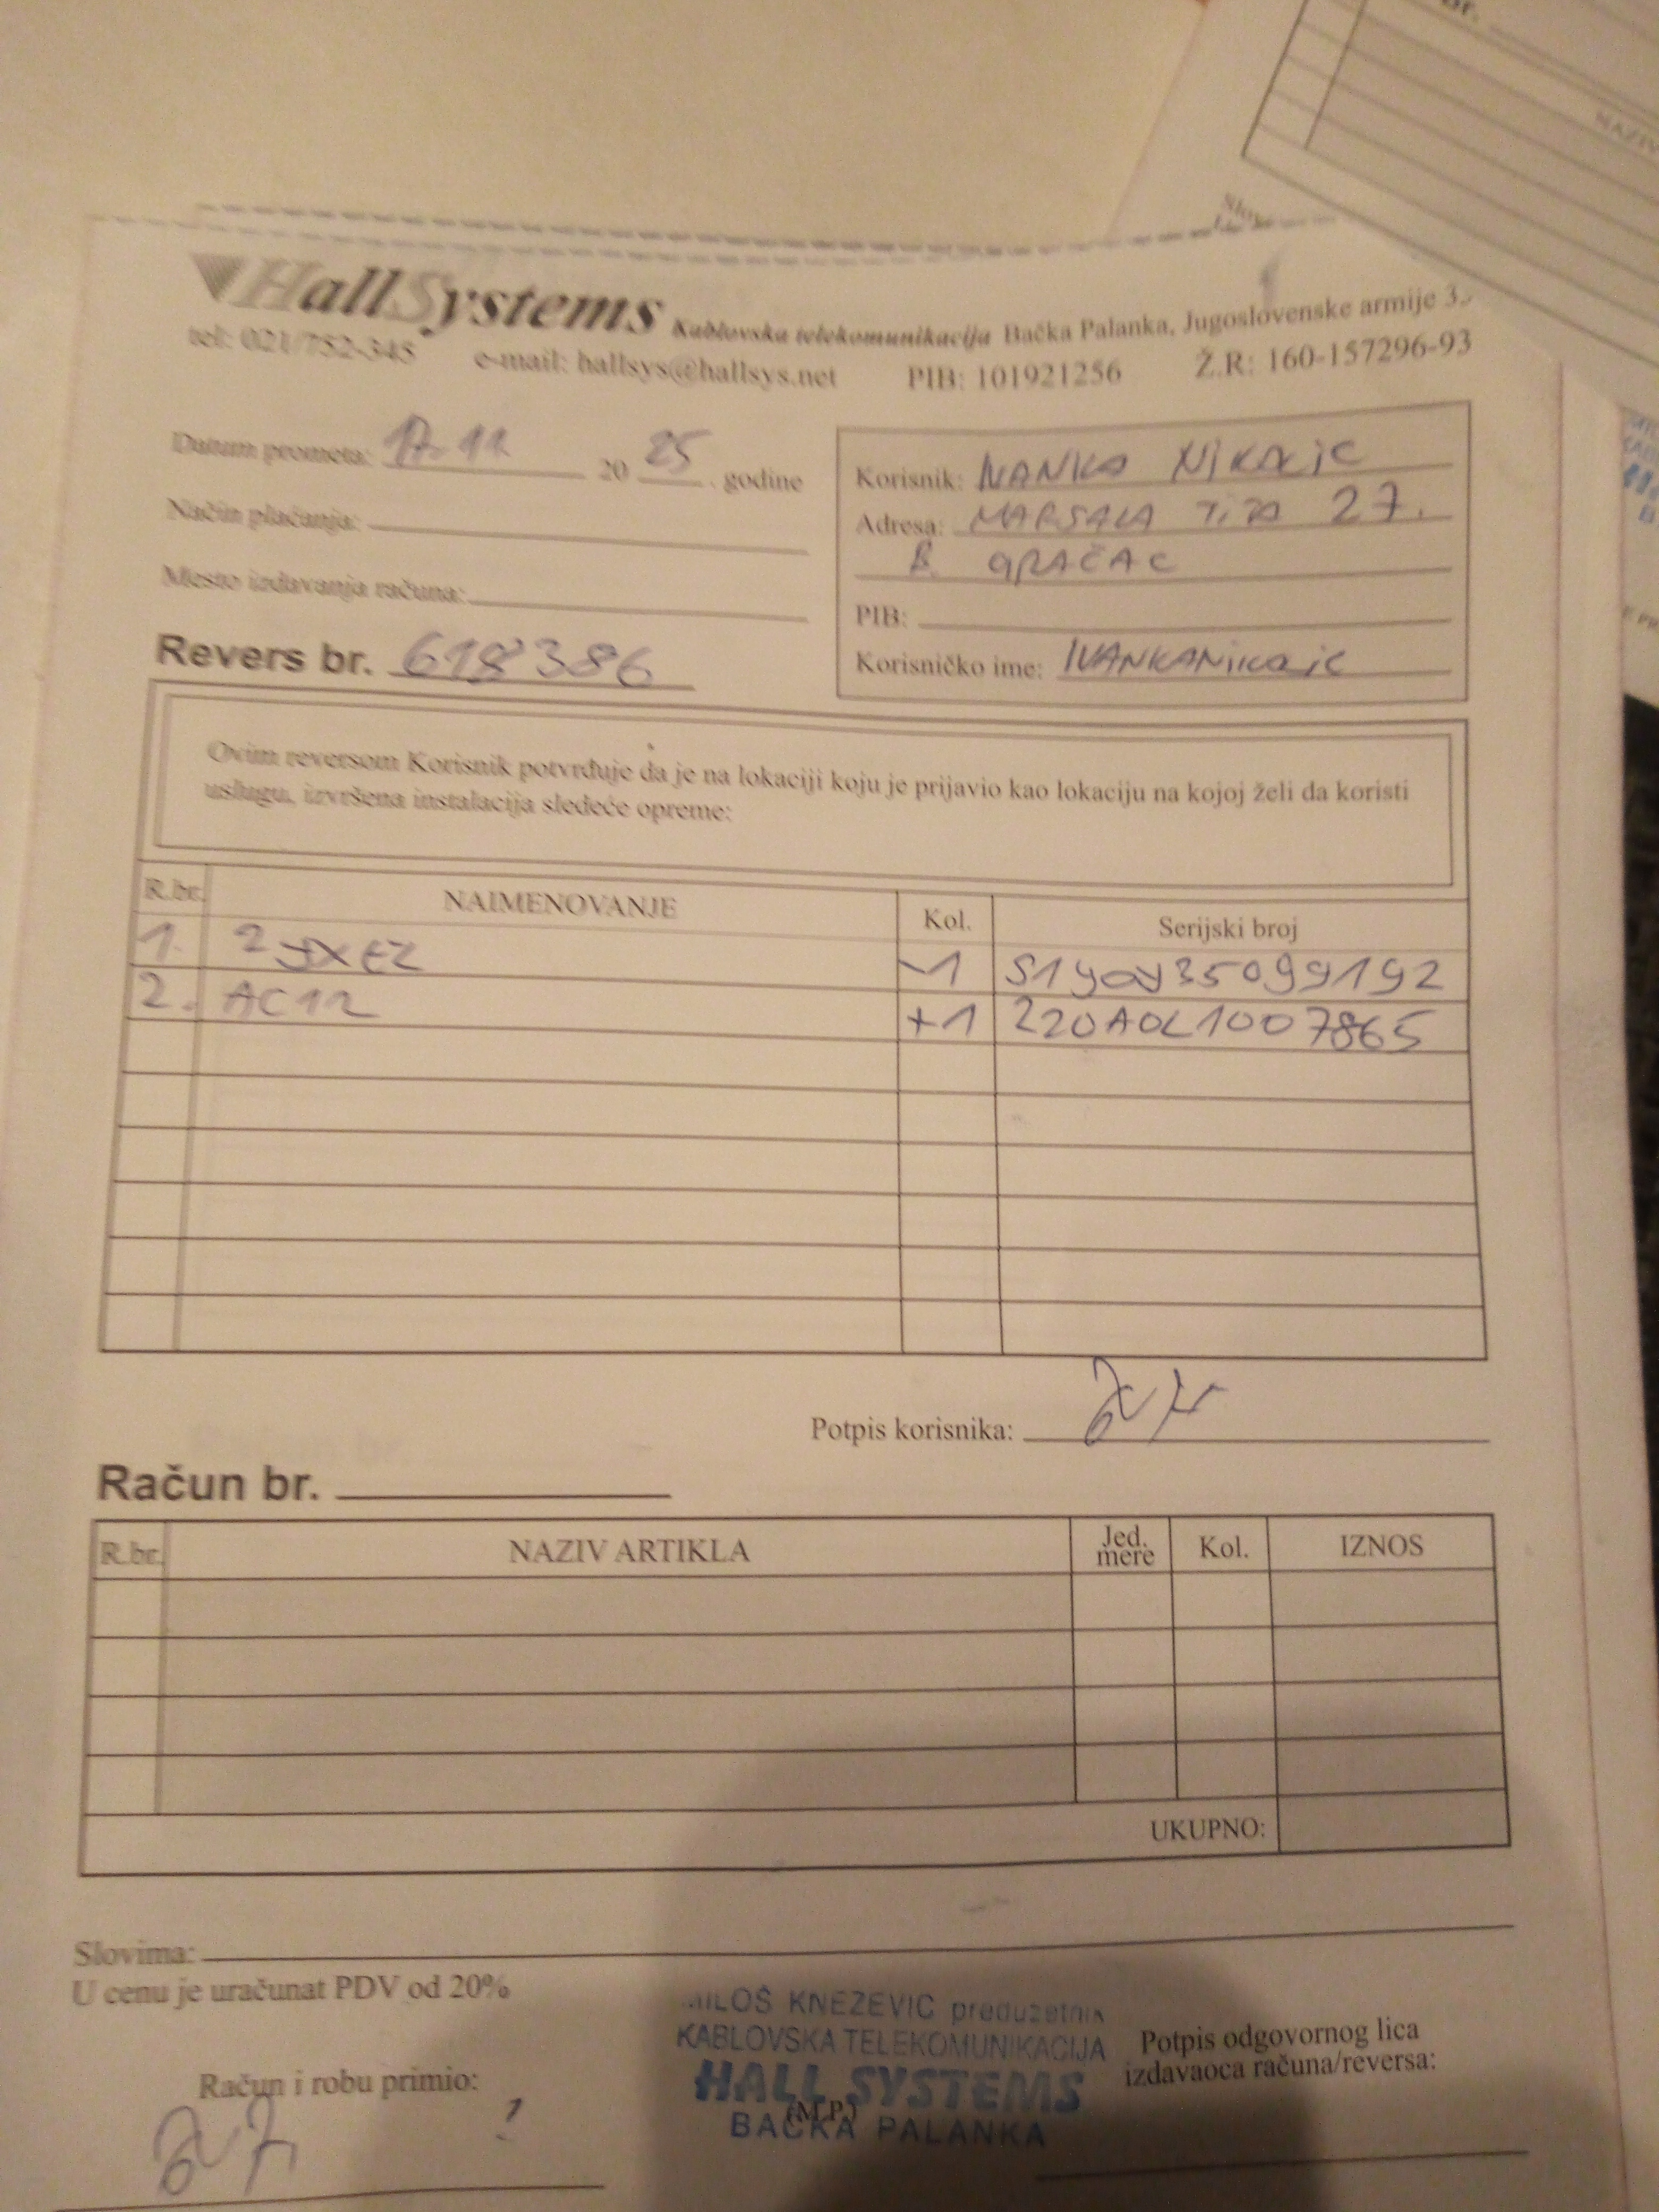 HallSystems Kablovska telekomunikacija Bačka Palanka, Jugoslovenske armije 3.
tel: 021/752-345 e-mail: hallsys@hallsys.net PIB: 101921256 Ž.R: 160-157296-93
Datum prometa: 17.11 20 25 . godine
Način plaćanja:
Mesto izdavanja računa:
Revers br. 618386
Korisnik: IVANKA NIKOLIC
Adresa: MARSALA TITA 27.
B. GRAČAC
PIB:
Korisničko ime: IVANKANIKOLIC
Ovim reversom Korisnik potvrđuje da je na lokaciji koju je prijavio kao lokaciju na kojoj želi da koristi
uslugu, izvršena instalacija sledeće opreme:
R.br. NAIMENOVANJE Kol. Serijski broj
1. -1
2. AC12 +1 220AOL1007865
Potpis korisnika:
Račun br.
R.br. NAZIV ARTIKLA Jed. mere Kol. IZNOS
UKUPNO:
Slovima:
U cenu je uračunat PDV od 20%
Račun i robu primio:
MILOŠ KNEZEVIC preduzetnik
KABLOVSKA TELEKOMUNIKACIJA
HALL SYSTEMS
(M.P.)
BAČKA PALANKA
Potpis odgovornog lica
izdavaoca računa/reversa: